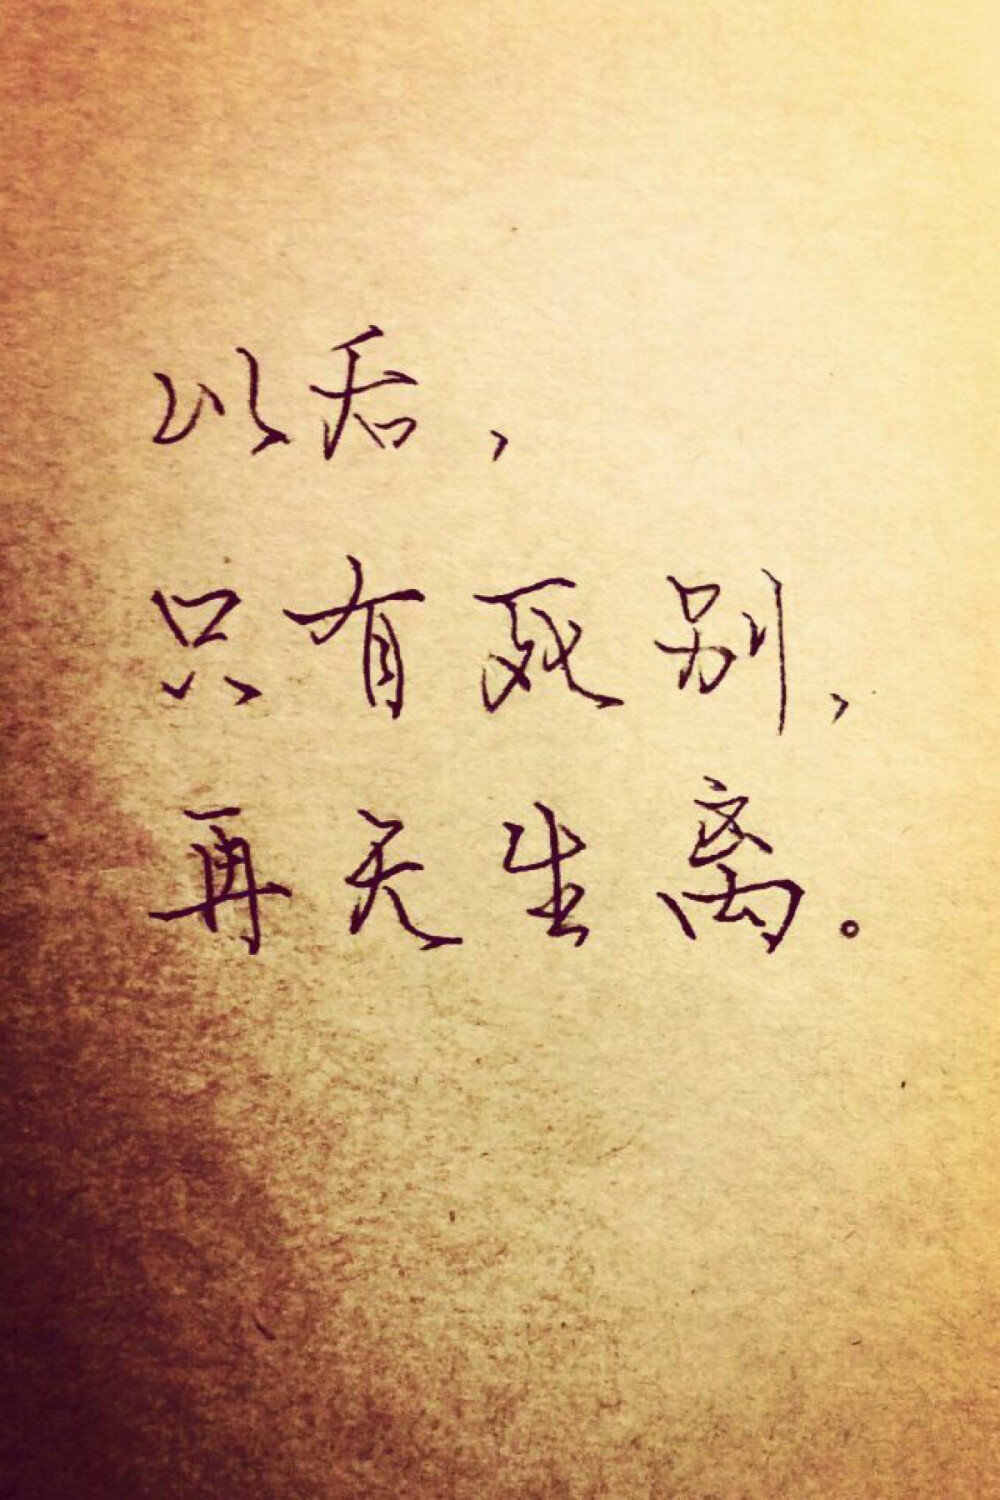 以后，
只有死别，
再无生离。